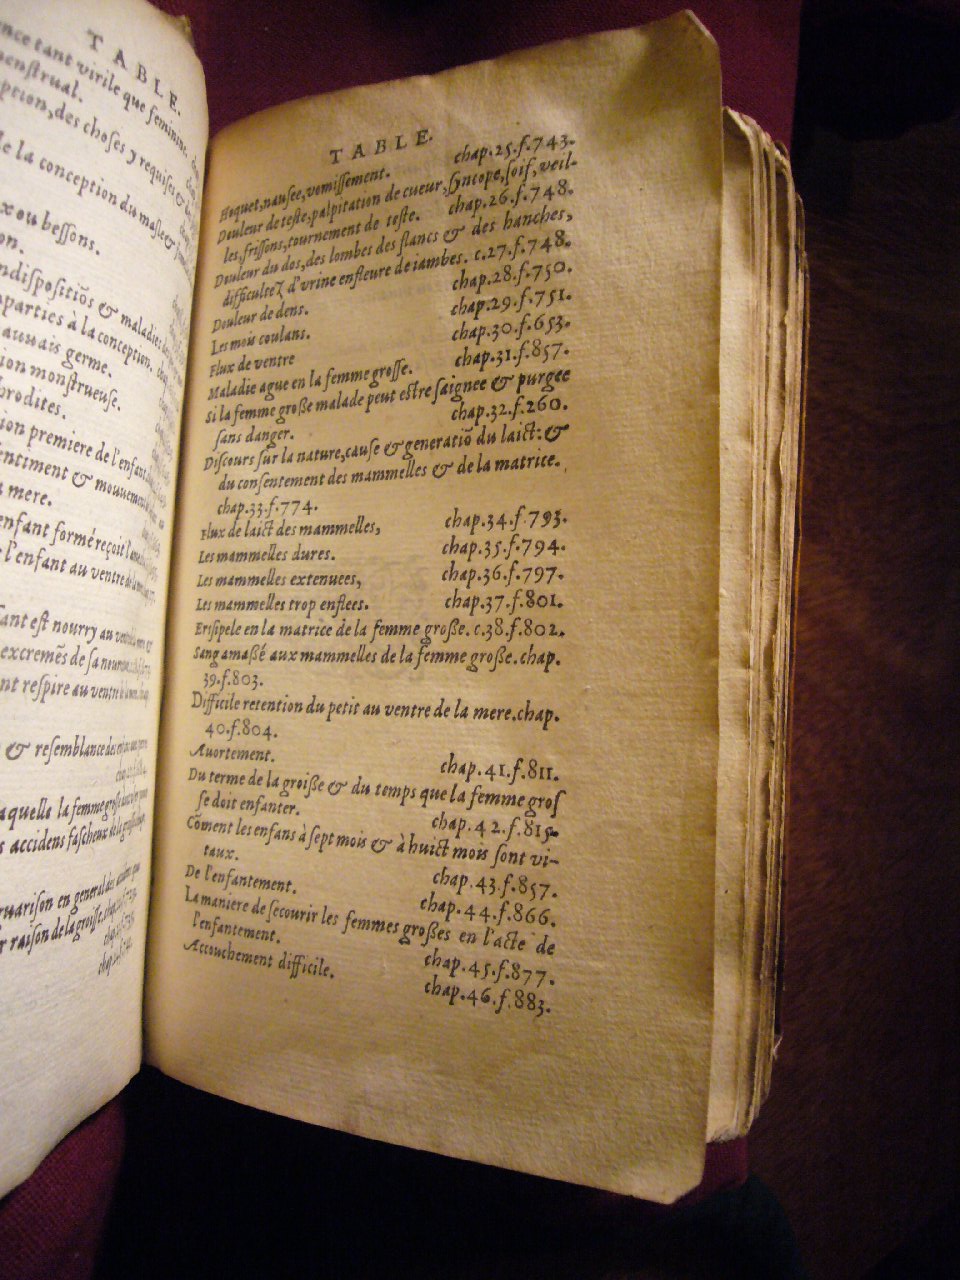 TABLE.
ence tant virile que feminine.
menstrual.
ption, des choses y requises &
e la conception du masle &
x ou bessons.
on.
ndispositiõs & maladies des
parties à la conception. chap.
auuais germe.
ion monstrueuse.
hrodites.
ion premiere de l'enfant
entiment & mouuement
a mere.
enfant formé reçoit l'ame
e l'enfant au ventre de la mere.
fant est nourry au ventre
excremẽs de sa nourri
nt respire au ventre de la mere. chap.
& resemblance des
aquelle la femme grosse doit
s accidens fascheux de la grossesse
ruarison en general des accidens que
r raison de la groisse. chap.
TABLE.
Hoquet, nausee, vomissement. chap.25.f.743.
Douleur de teste, palpitation de cueur, syncope, soif, veil-
les, frissons, tournement de teste. chap.26.f.748.
Douleur du dos, des lombes des flancs & des hanches,
difficulteζ d'vrine enfleure de iambes. c.27.f.748.
Douleur de dens. chap.28.f.750.
Les mois coulans. chap.29.f.751.
Flux de ventre chap.30.f.653.
Maladie ague en la femme grosse. chap.31.f.857.
Si la femme große malade peut estre saignee & purgee
sans danger. chap.32.f.260.
Discours sur la nature, cause & generatiõ du laict: &
du consentement des mammelles & de la matrice.
chap.33.f.774.
Flux de laict des mammelles, chap.34.f.793.
Les mammelles dures. chap.35.f.794.
Les mammelles extenuees, chap.36.f.797.
Les mammelles trop enflees. chap.37.f.801.
Erisipele en la matrice de la femme große. c.38.f.802.
Sang amaßé aux mammelles de la femme große. chap.
39.f.803.
Difficile retention du petit au ventre de la mere. chap.
40.f.804.
Auortement. chap.41.f.811.
Du terme de la groiße & du temps que la femme gros
se doit enfanter. chap.42.f.815.
Cõment les enfans à sept mois & à huict mois sont vi-
taux. chap.43.f.857.
De l'enfantement. chap.44.f.866.
La maniere de secourir les femmes großes en l'acte de
l'enfantement. chap.45.f.877.
Accouchement difficile. chap.46.f.883.